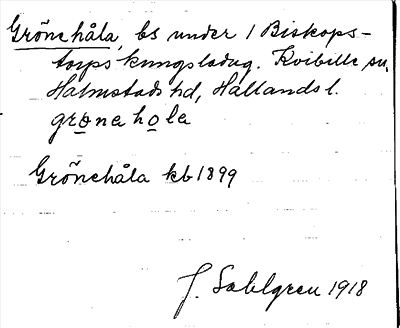 Grönehåla, bs under 1 Biskops-
torps kungsladug. Kvibille sn,
Halmstads hd, Hallands l.
grönahola
Grönehåla kb 1899
J. Sahlgren 1918